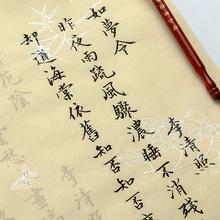 如夢令 李清照
昨夜雨疏風驟濃睡不消殘
却道海棠依舊知否知否
花陰
李清